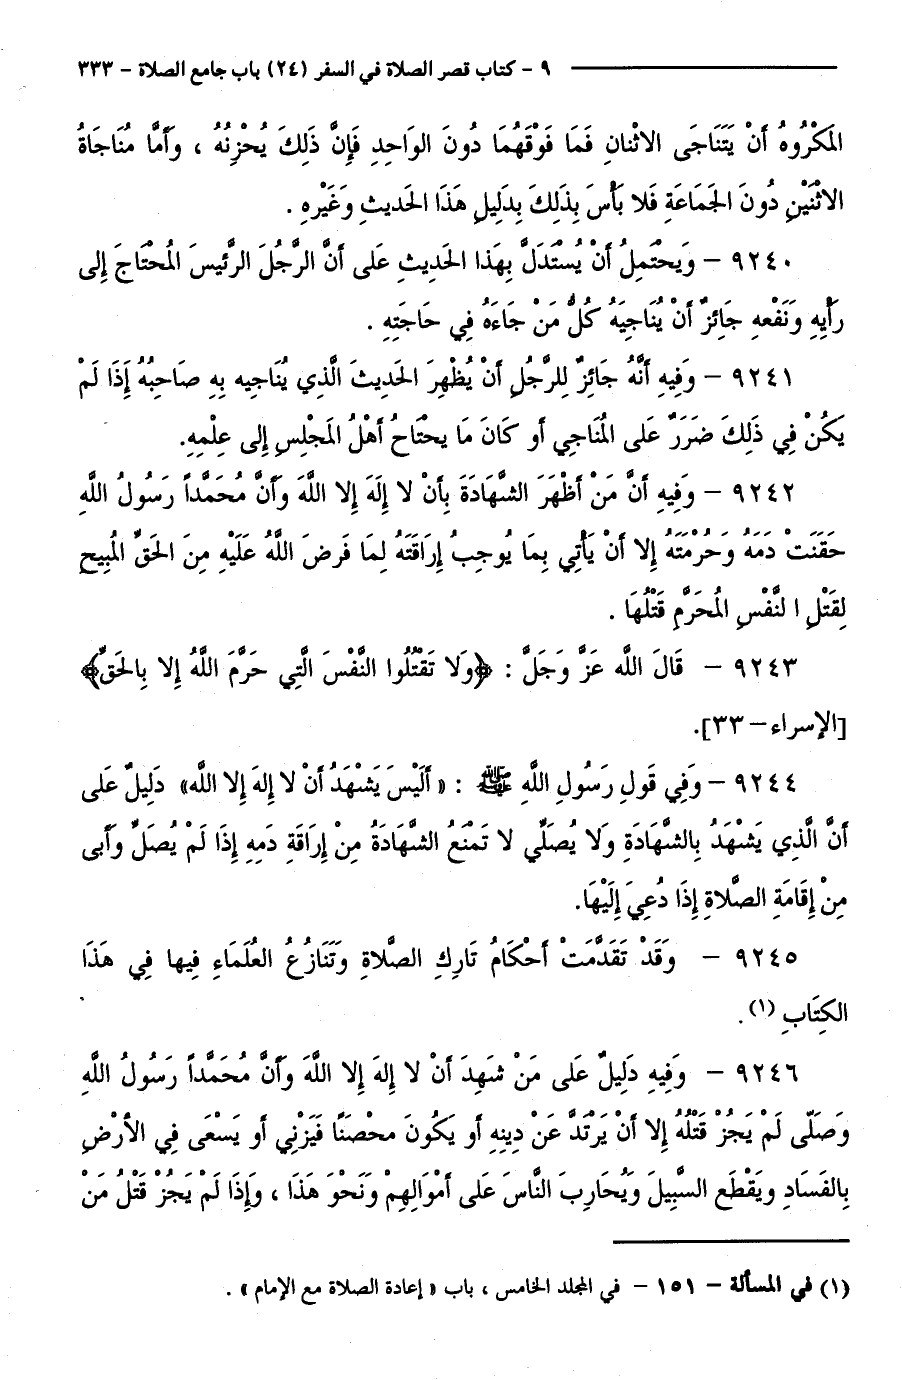 ٩ - كتاب قصر الصلاة في السفر (٢٤) باب جامع الصلاة - ٣٣٣
المَكْرُوهُ أَنْ يَتَنَاجَى الاثْنانِ فَمَا فَوْقَهُمَا دُونَ الوَاحِدِ فَإِنَّ ذَلِكَ يُحْزِنُهُ ، وَأَمَّا مُنَاجَاةُ
الاثْنَيْنِ دُونَ الجَمَاعَةِ فَلا بَأْسَ بِذَلِكَ بِدَلِيلِ هَذَا الحَديثِ وَغَيْرِهِ .
٩٢٤٠ - وَيَحْتَمِلُ أَنْ يُسْتَدَلَّ بِهَذا الحَدِيثِ على أَنَّ الرَّجُلَ الرَّئيسَ المُحْتَاجَ إِلى
رَأْيِهِ وَنَفْعِهِ جَائِزٌ أَنْ يُنَاجِيَهُ كُلُّ مَنْ جَاءَهُ فِي حَاجَتِهِ .
٩٢٤١ - وَفِيهِ أَنَّهُ جَائِزٌ لِلرَّجُلِ أَنْ يُظْهِرَ الحَديثَ الَّذِي يُنَاجِيه بِهِ صَاحِبُهُ إِذَا لَمْ
يَكُنْ فِي ذَلِكَ ضَرَرٌ عَلى المُنَاجِي أَو كَانَ مَا يحْتَاحُ أَهْلُ المَجْلِسِ إِلى عِلْمِهِ.
٩٢٤٢ - وَفِيهِ أَنَّ مَنْ أَظْهَرَ الشَّهَادَةَ بِأَنْ لا إِلَهَ إِلا اللَّهَ وَأَنَّ مُحَمَّداً رَسُولُ اللَّهِ
حَقَنَتْ دَمَهُ وَحُرْمَتَهُ إِلا أَنْ يَأْتِي بِمَا يُوجِبُ إِرَاقَتَهُ لِمَا فَرضَ اللَّهُ عَلَيْهِ مِنَ الحَقِّ المُبيحِ
لِقَتْلِ ا لنَّفْسِ المُحَرَّمِ قَتْلُهَا .
٩٢٤٣ - قَالَ اللَّه عَزَّ وَجَلَّ : ﴿وَلا تَقْتُلُوا النَّفْسَ الَّتِي حَرَّمَ اللَّهُ إِلا بِالحَقِّ﴾
[الإسراء-٣٣].
٩٢٤٤ - وَفِي قَولِ رَسُولِ اللَّهِ ﷺ : « أَلَيْسَ يَشْهَدُ أَنْ لا إِلهَ إِلا اللَّه» دَلِيلٌ عَلى
أَنَّ الَّذِي يَشْهَدُ بِالشَّهَادَةِ وَلا يُصَلِّي لا تَمْنَعُ الشَّهَادَةُ مِنْ إِرَاقَةِ دَمِهِ إِذَا لَمْ يُصَلِّ وَأَبى
مِنْ إِقَامَةِ الصَّلاةِ إِذَا دُعِيَ إِلَيْهَا.
٩٢٤٥ - وَقَدْ تَقَدَّمَتْ أَحْكَامُ تَارِكِ الصَّلاةِ وَتَنَازُعُ العُلَمَاءِ فِيها فِي هَذَا
الكِتَابِ (١).
٩٢٤٦ - وَفِيهِ دَلِيلٌ عَلى مَنْ شَهِدَ أَنْ لا إِلهَ إِلا اللَّهَ وَأَنَّ مُحَمَّداً رَسُولُ اللَّهِ
وَصَلَّى لَمْ يَجُزْ قَتْلُهُ إِلا أَنْ يَرْتَدَّ عَنْ دِينِهِ أَو يَكُونَ محْصَنًا فَيَزْنِي أَو يَسْعَى فِي الأَرْضِ
بِالفَسَادِ ويَقْطَع السَّبِيلَ وَيُحَارِبَ النَّاسَ عَلى أَمْوَالِهِمْ وَنَحْوَ هَذَا ، وَإِذَا لَمْ يَجُزْ قَتْلُ مَنْ
(١) في المسألة - ١٥١ - في المجلد الخامس ، باب « إعادة الصلاة مع الإمام » .